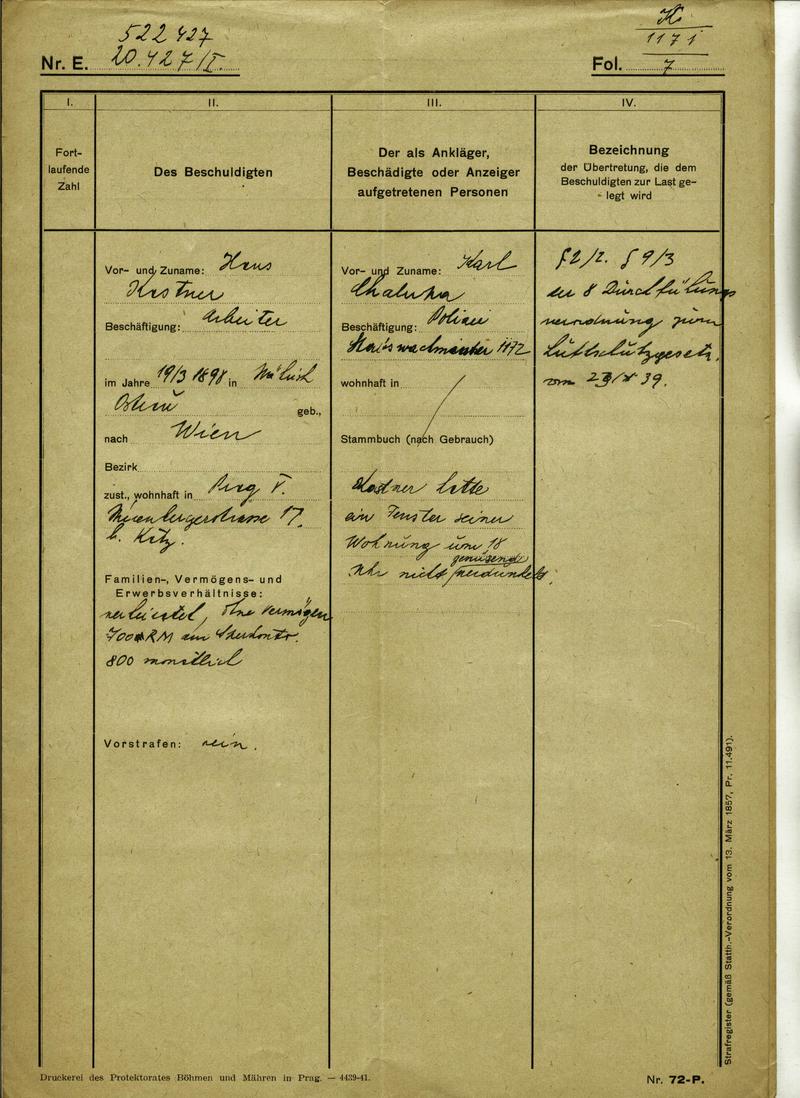 522 427
Nr. E. 20.427/I.
1171
Fol. 7
I.
II.
III.
IV.
Fort-
laufende
Zahl
Des Beschuldigten
Der als Ankläger,
Beschädigte oder Anzeiger
aufgetretenen Personen
Bezeichnung
der Übertretung, die dem
Beschuldigten zur Last ge-
legt wird
Vor- und Zuname: Hans
Kestner
Beschäftigung: Arbeiter
im Jahre 19/3 1898 in
geb.,
nach Wien
Bezirk
zust., wohnhaft in Prag V.
17.
b.
Familien-, Vermögens- und
Erwerbsverhältnisse:
ohne Vermögen
800 monatlich
Vorstrafen: nein.
Vor- und Zuname: Karl
Beschäftigung: Polizei
Stabswachmeister 1172
wohnhaft in
Stammbuch (nach Gebrauch)
Kostner hatte
ein Fenster seiner
Wohnung um 18
genügend
Uhr nicht verdunkelt.
§ 2/2. § 9/3
der 8 Durchführungs
verordnung zum
Luftschutzgesetz
vom 39.
Strafregister (gemäß Statth.-Verordnung vom 13. März 1857, Pr. 11.491).
Druckerei des Protektorates Böhmen und Mähren in Prag. — 4439-41.
Nr. 72-P.